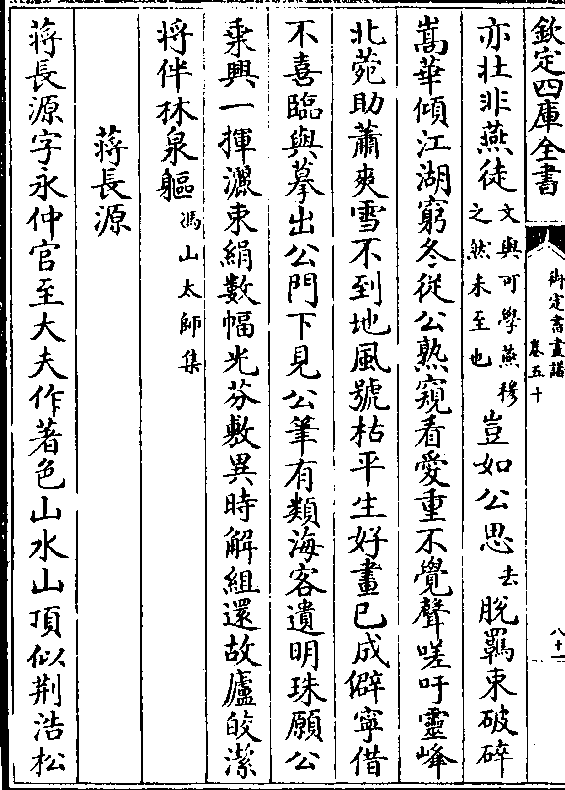 欽定四庫全書
御定書畫譜
卷五十
八十一
亦壯非燕徒文與可學燕穆之然未至也豈如公思去脫羈束破碎
嵩華傾江湖窮冬從公熟窺看愛重不覺聲嗟吁靈峰
北苑助蕭爽雪不到地風號枯平生好畫已成僻寧借
不喜臨與摹出公門下見公筆有類海客遺明珠願公
乘興一揮灑束絹數幅光芬敷異時解組還故廬皎潔
將伴林泉軀馮山太師集
蔣長源
蔣長源字永仲官至大夫作著色山水山頂似荆浩松